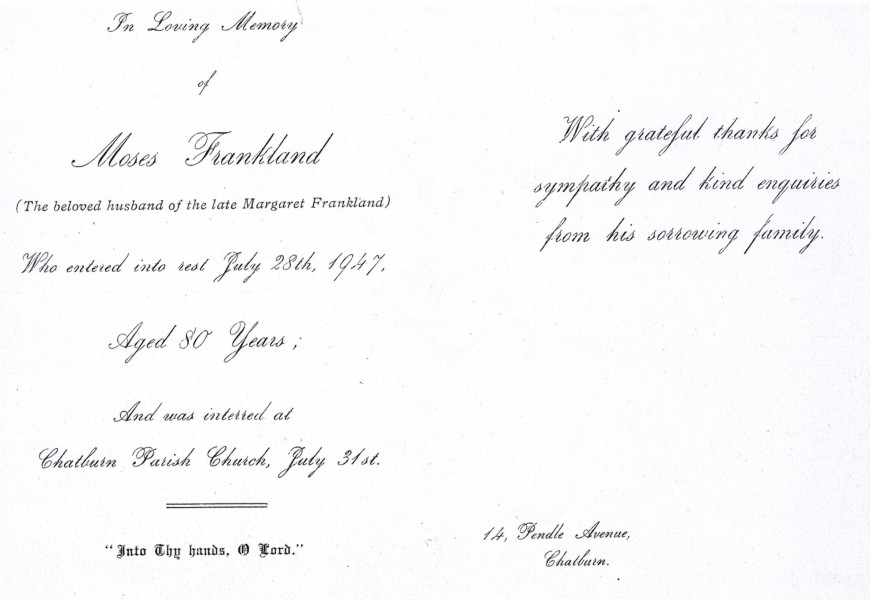 In Loving Memory
of
Moses Frankland
(The beloved husband of the late Margaret Frankland)
Who entered into rest July 28th, 1947,
Aged 80 Years ;
And was interred at
Chatburn Parish Church, July 31st.
"Into Thy hands, O Lord."
With grateful thanks for
sympathy and kind enquiries
from his sorrowing family.
14, Pendle Avenue,
Chatburn.